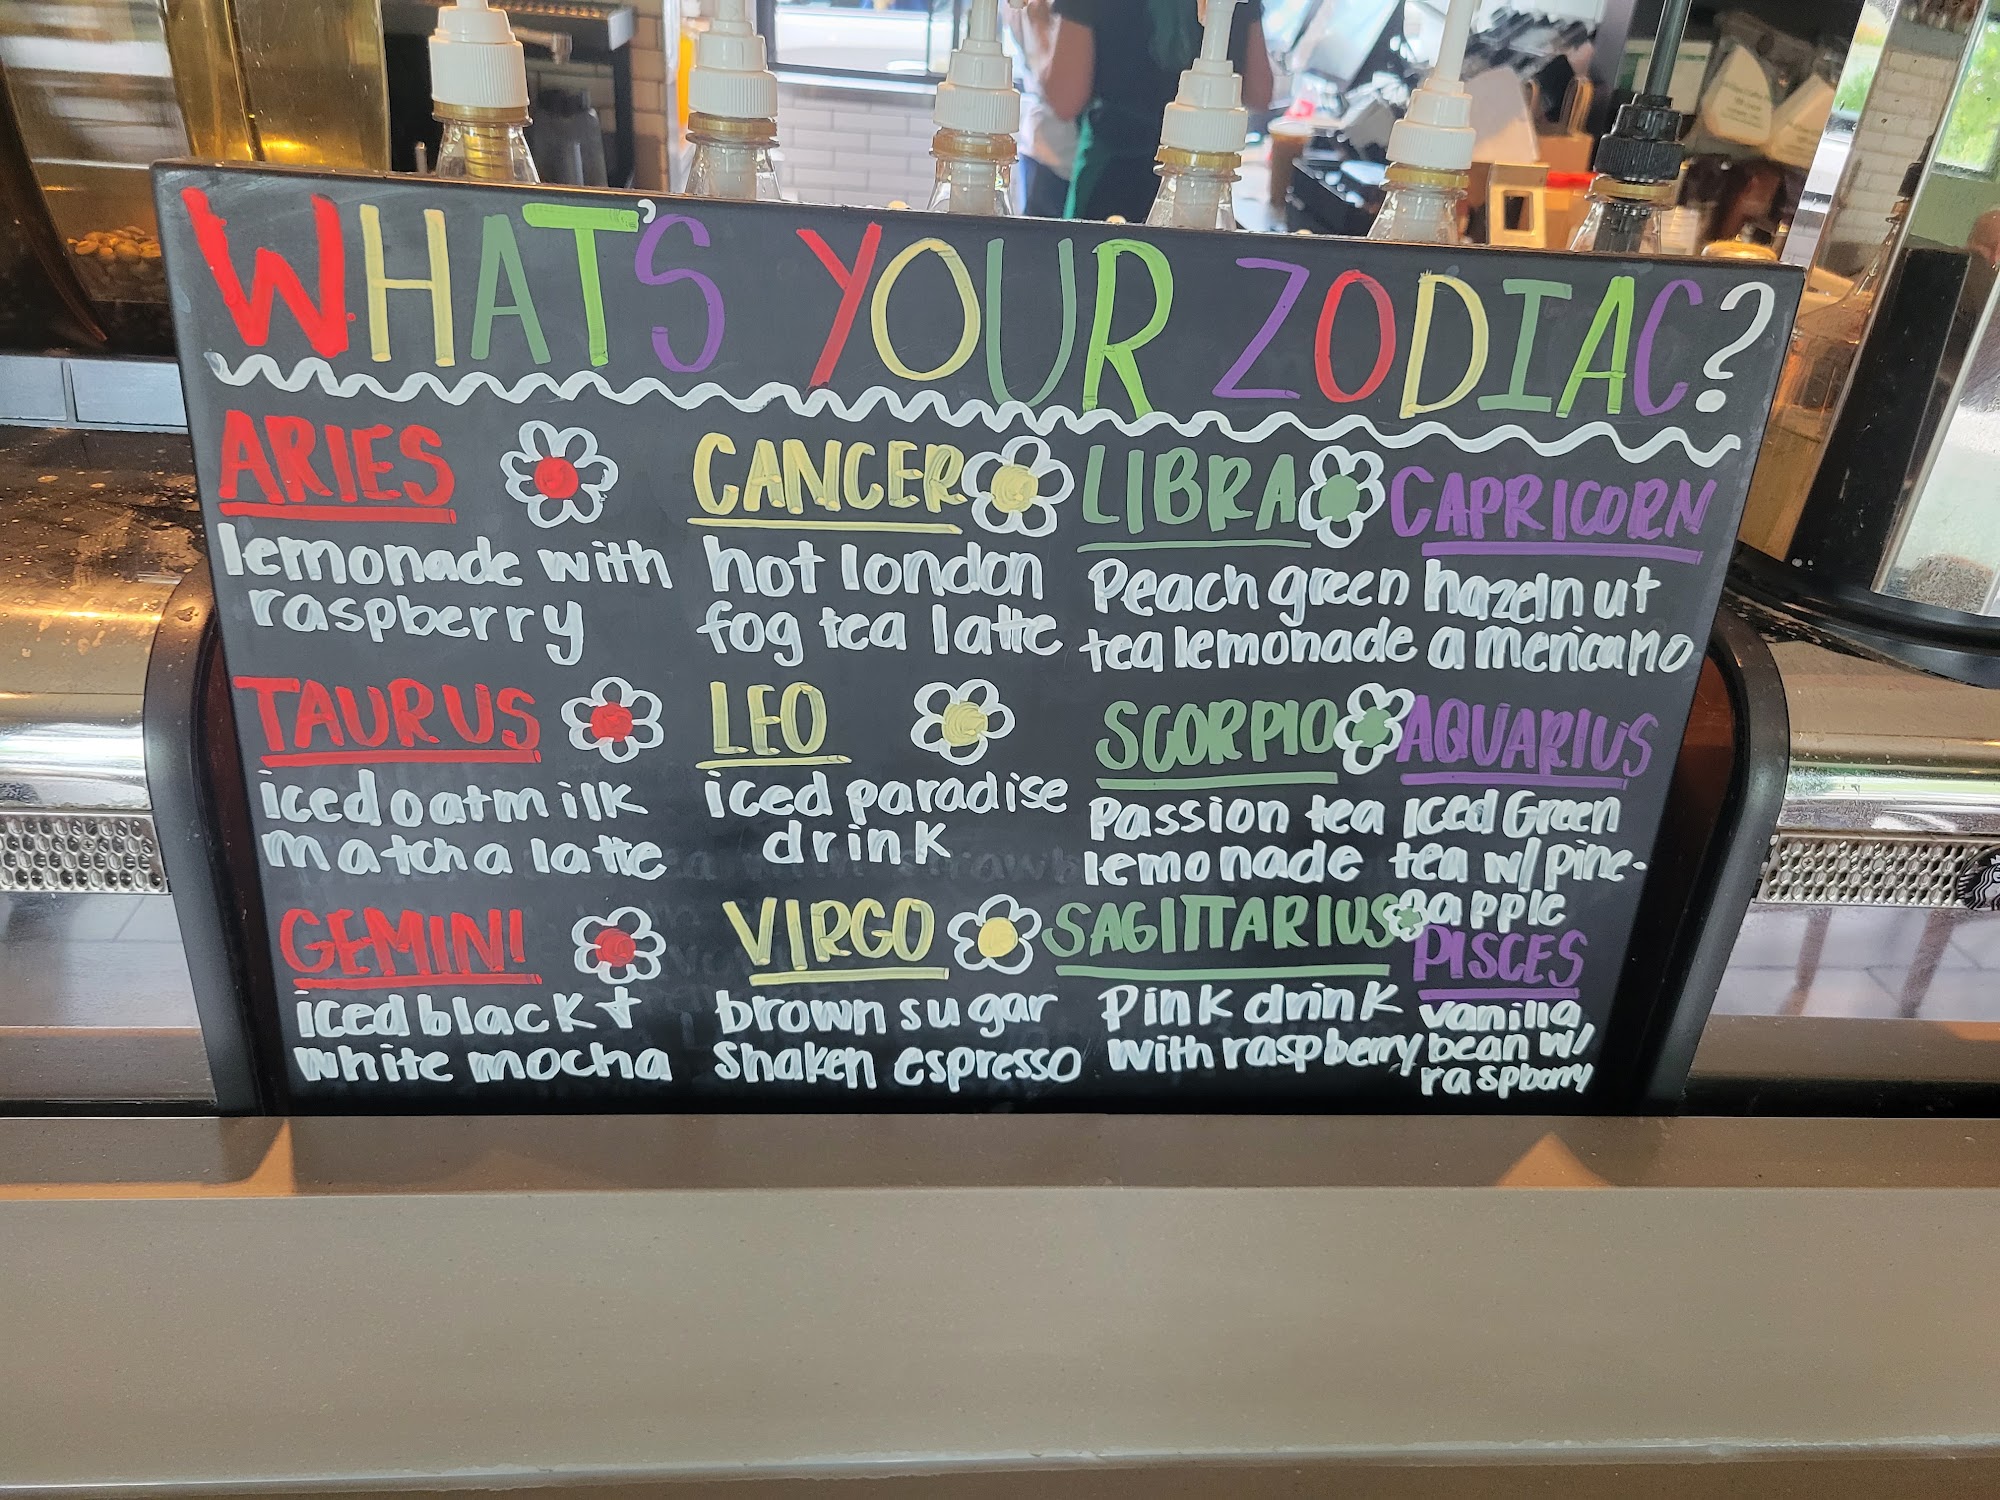 WHAT'S YOUR ZODIAC?
ARIES
lemonade with
raspberry
TAURUS
iced oatmilk
matcha latte
GEMINI
iced black +
white mocha
CANCER
hot london
fog tea latte
LEO
iced paradise
drink
VIRGO
brown sugar
shaken espresso
LIBRA
Peach green
tea lemonade
SCORPIO
Passion tea
lemonade
SAGITTARIUS
Pink drink
with raspberry
CAPRICORN
hazelnut
americano
AQUARIUS
Iced Green
tea w/ pine-
apple
PISCES
vanilla
bean w/
raspberry